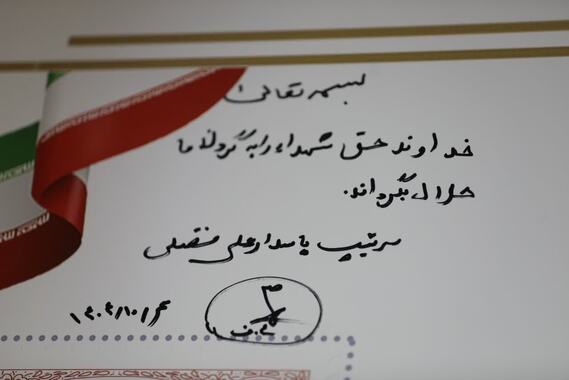 بسمه تعالی
خداوند حق شهداء را به گردن ما
حلال بگرداند.
سرتیپ پاسدار علی فضلی
۱۴۰۳/۱۰/